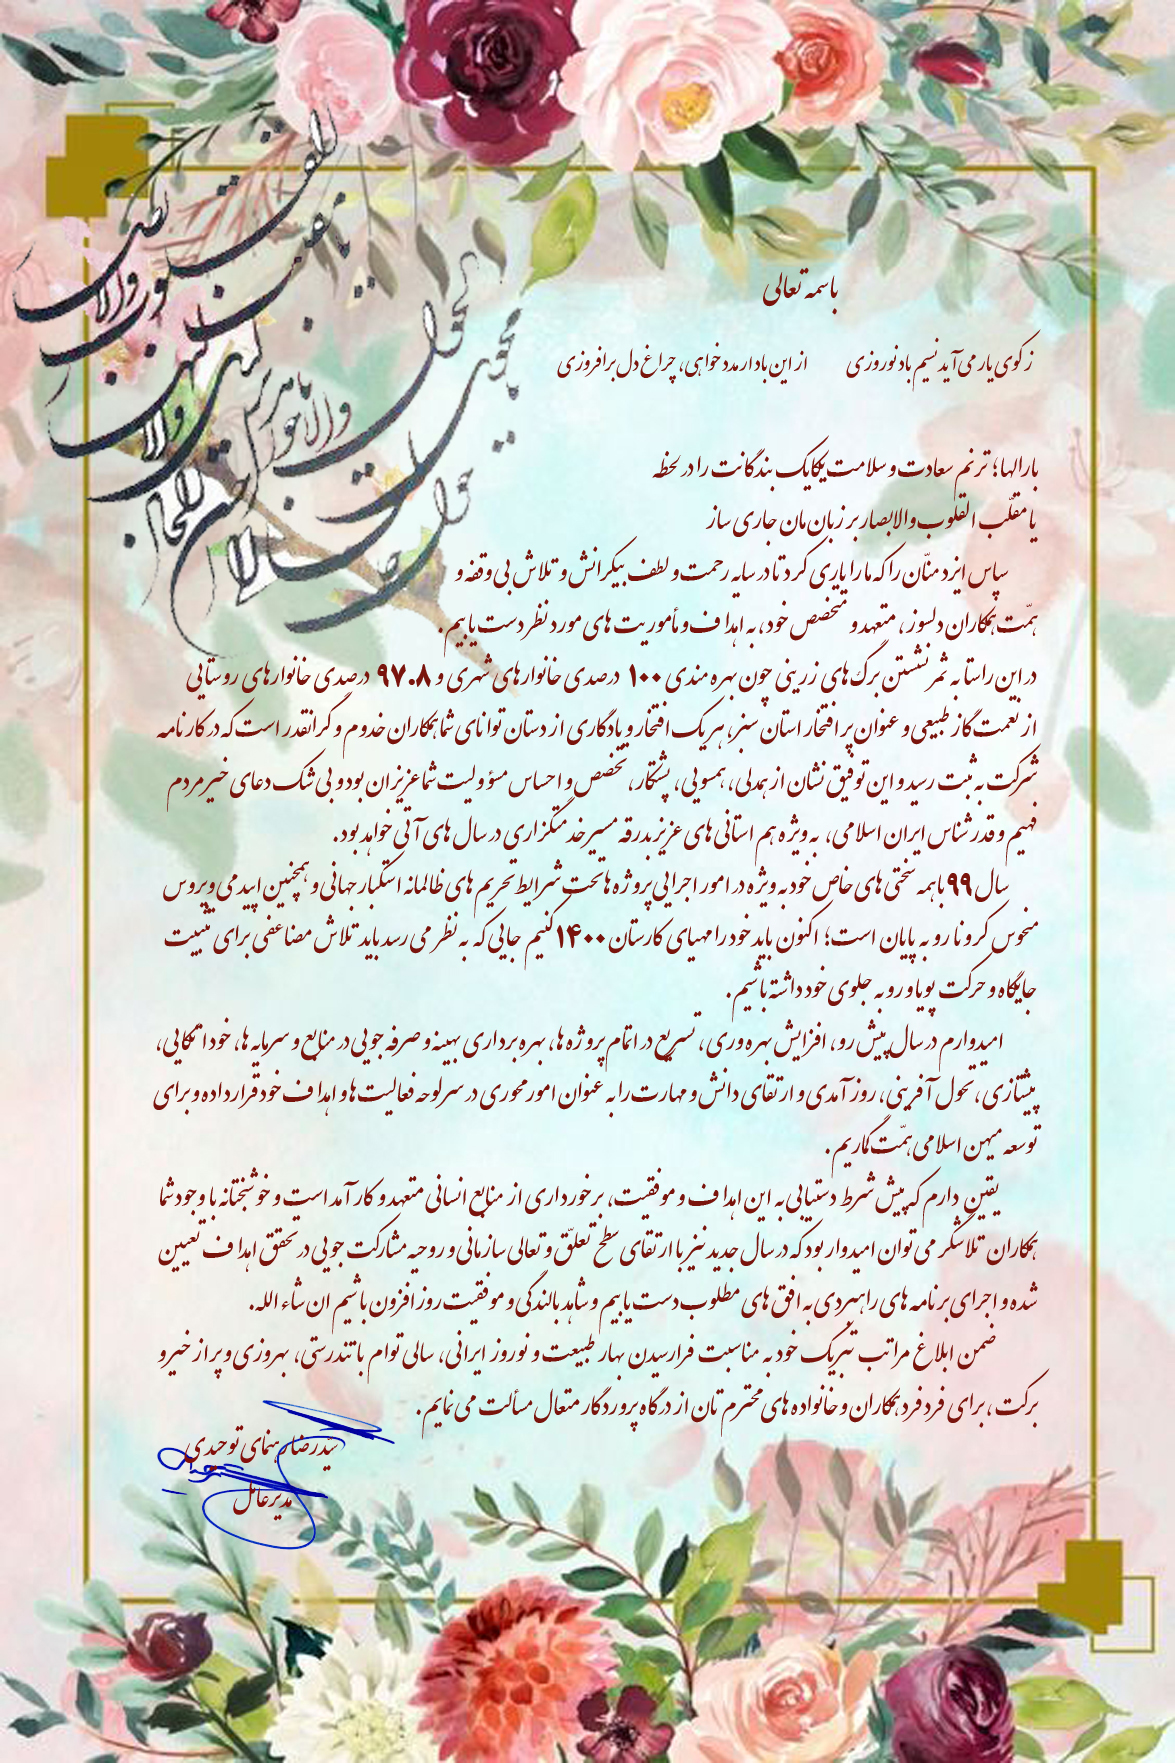 یا مقلب القلوب والابصار
یا مدبر اللیل والنهار
یا محول الحول والاحوال
حول حالنا الی احسن الحال
باسمه تعالی
ز کوی یار می‌آید نسیم باد نوروزی از این باد ار مدد خواهی، چراغ دل برافروزی
بارالها؛ ترنم سعادت و سلامت یکایک بندگانت را در لحظه
یا مقلّب القلوب والابصار بر زبان‌مان جاری ساز
سپاس ایزد منّان را که ما را یاری کرد تا در سایه رحمت و لطف بیکرانش و تلاش بی وقفه و
همّت همکاران دلسوز، متعهد و متخصص خود، به اهداف و مأموریت های مورد نظر دست یابیم.
در این راستا به ثمر نشستن برگ های زرینی چون بهره مندی ۱۰۰ درصدی خانوارهای شهری و ۹۷.۸ درصدی خانوارهای روستایی
از نعمت گاز طبیعی و عنوان پر افتخار استان سبز، هر یک افتخار و یادگاری از دستان توانای شما همکاران خدوم و گرانقدر است که در کارنامه
شرکت به ثبت رسید و این توفیق نشان از همدلی، همسویی، پشتکار، تخصص و احساس مسؤولیت شما عزیزان بود و بی شک دعای خیر مردم
فهیم و قدرشناس ایران اسلامی، به ویژه هم استانی های عزیز بدرقه مسیر خدمتگزاری در سال های آتی خواهد بود.
سال ۹۹ با همه سختی های خاص خود به ویژه در امور اجرایی پروژه ها تحت شرایط تحریم های ظالمانه استکبار جهانی و همچنین اپیدمی ویروس
منحوس کرونا رو به پایان است؛ اکنون باید خود را مهیای کارستان ۱۴۰۰ کنیم جایی که به نظر می رسد باید تلاش مضاعفی برای تثبیت
جایگاه و حرکت پویا و رو به جلوی خود داشته باشیم.
امیدوارم در سال پیش رو، افزایش بهره وری، تسریع در اتمام پروژه ها، بهره برداری بهینه و صرفه جویی در منابع و سرمایه ها، خود اتکایی،
پیشتازی، تحول آفرینی، روزآمدی و ارتقای دانش و مهارت را به عنوان امور محوری در سرلوحه فعالیت ها و اهداف خود قرار داده و برای
توسعه میهن اسلامی همّت گماریم.
یقین دارم که پیش شرط دستیابی به این اهداف و موفقیت، برخورداری از منابع انسانی متعهد و کارآمد است و خوشبختانه با وجود شما
همکاران تلاشگر می توان امیدوار بود که در سال جدید نیز با ارتقای سطح تعلّق و تعالی سازمانی و روحیه مشارکت جویی در تحقق اهداف تعیین
شده و اجرای برنامه های راهبردی به افق های مطلوب دست یابیم و شاهد بالندگی و موفقیت روز افزون باشیم ان شاء الله.
ضمن ابلاغ مراتب تبریک خود به مناسبت فرارسیدن بهار طبیعت و نوروز ایرانی، سالی توام با تندرستی، بهروزی و پر از خیر و
برکت، برای فرد فرد همکاران و خانواده های محترم تان از درگاه پروردگار متعال مسألت می نمایم.
سیّدرضا رهنمای توحیدی
مدیرعامل